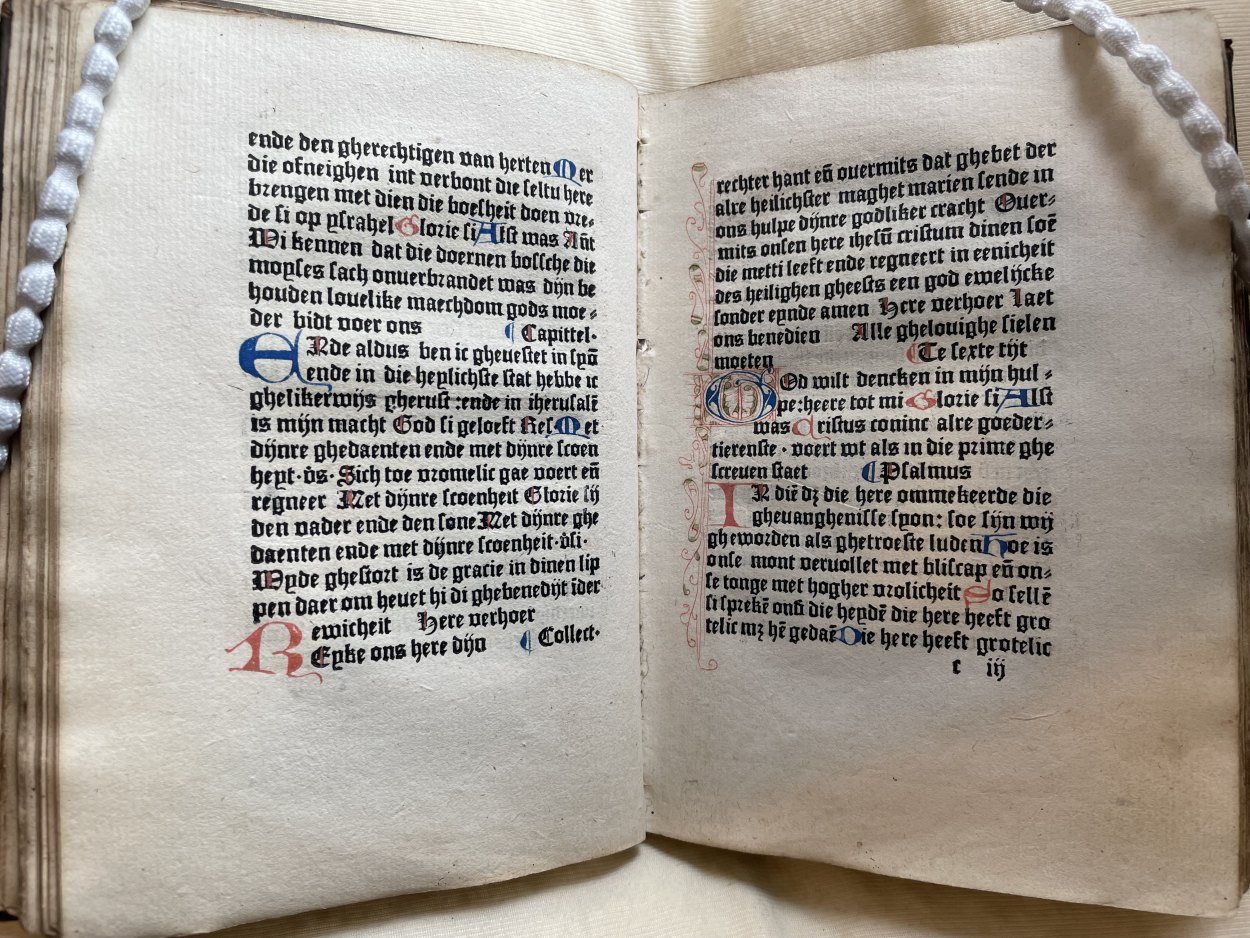 ende den gherechtigen van herten Mer
die ofneighen int verbont die seltu here
brengen met dien die boesheit doen vre⸗
de si op ysrahel Glorie si Alst was Añt
Wi kennen dat die doernen bossche die
moyses sach onuerbrandet was dijn be
houden louelike maechdom gods moe⸗
der bidt voer ons ¶ Capittel·
ENde aldus ben ic gheuestet in syõ
ende in die heylichste stat hebbe ic
ghelikerwijs gherust :ende in iherusalẽ
is mijn macht God si geloeft Res Met
dijnre ghedaenten ende met dijnre scoen
heyt·vs· Sich toe vromelic gae voert eñ
regneer Met dijnre scoenheit Glorie sij
den vader ende den sone Met dijnre ghe
daenten ende met dijnre scoenheit·v̾si·
Wyde ghestort is de gracie in dinen lip
pen daer om heuet hi di ghebenedijt ider
ewicheit Here verhoer
REyke ons here dijn ¶ Collect·
rechter hant eñ ouermits dat ghebet der
alre heilichster maghet marien sende in
ons hulpe dijnre godliker cracht Ouer⸗
mits onsen here ihesũ cristum dinen soẽ
die metti leeft ende regneert in eenicheit
des heilighen gheests een god ewelijcke
sonder eynde amen Here verhoer Laet
ons benedien Alle ghelouighe sielen
moeten ¶ Te sexte tijt
GOd wilt dencken in mijn hul⸗
pe:heere tot mi Glorie si Alst
was Cristus coninc alre goeder⸗
tierenste · voert wt als in die prime ghe
screuen staet ¶ Psalmus
IN diẽ dz die here ommekeerde die
gheuanghenisse syon: soe sijn wij
gheworden als ghetroeste luden Hoe is
onse mont veruollet met bliscap eñ on⸗
se tonge met hogher vrolicheit Do sellẽ
si sprekẽ onð die heydẽ die here heeft gro
telic mz hẽ gedaẽ Die here heeft grotelic
c iij